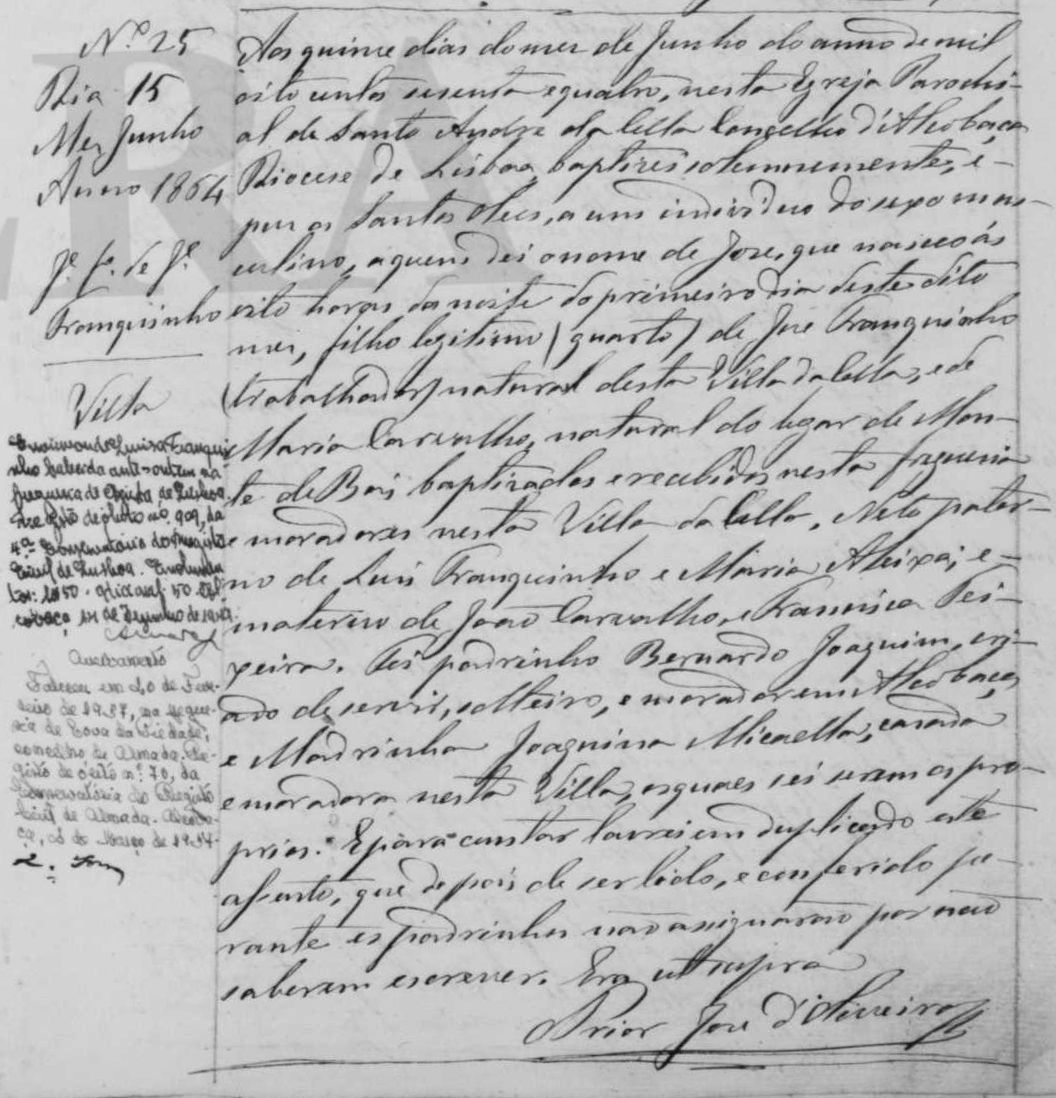 N.º 25
Dia 15
Mez Junho
Anno 1864
J.e f.o de J.e
Franquinho
Villa
Enviuvou de Luisa Franqui-
nho falecida ante-ontem na
freguesia de Lisboa.
Registo de óbito nº 909, da
4.ª Conservatória do Registo
Civil de Lisboa.
14 de Junho de
Averbamento
Faleceu em 20 de Feve-
reiro de 1937, na fregue-
sia de Cova da Piedade,
concelho de Almada. Re-
gisto de óbito nº 70, da
Conservatória do Registo
Civil de Almada. Alcoba-
ça, de Março de 1937.
Aos quinze dias do mez de Junho do anno de mil
oito centos sesenta e quatro, nesta Egreja Parochi-
al de Santo Andre da Cella Concelho d'Alcobaça
Diocese de Lisboa, baptizei solemnemente, e
puz os Santos Oleos, a um individuo do sexo mas-
culino, a quem dei o nome de Jose, que nasceo ás
oito horas da noite do primeiro dia deste dito
mez, filho legitimo (quarto) de Jose Franquinho
(trabalhador) natural desta Villa da Cella, e de
Maria Carvalho, natural do lugar de Mon-
te de Bois baptizados e recebidos nesta freguezia
e moradores nesta Villa da Cella, Neto pater-
no de Luis Franquinho e Maria Aleixa; e
materno de João Carvalho, e Francisca Tei-
xeira. Foi padrinho Bernardo Joaquim, cri-
ado de servir, solteiro, e morador em Alcobaça,
e Madrinha Joaquina Micaella, casada
e moradora nesta Villa, os quaes sei serem os pro-
prios. E para constar lavrei em duplicado este
assento, que depois de ser lido, e conferido pe-
rante os padrinhos não assignarão por não
saberem escrever. Era ut supra
O Prior Jose d'Oliveira